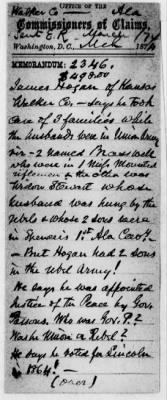 OFFICE OF THE
Walker Co — Ala
Commissioners of Claims,
Sent E.R. March / 74
Washington, D.C., Mch 1874
MEMORANDUM: 2346.
$498.00
James Hogan of Kansas
Walker Co — says he took
care of 3 families while
the husbands were in Union Army
viz - 2 named Braswell
who were in 1 Miss Mounted
riflemen & the other was
Stewart whose
husband was hung by the
rebels & whose 2 sons were
in Spencer's 1st Ala Cavy.
— But Hogan had 2 sons
in the rebel Army!
He says he was appointed
Justice of the Peace by Gov.
Parsons. Who was Gov. P.?
Was he Union or Rebel?
He says he voted for Lincoln
in 1864!
(over)